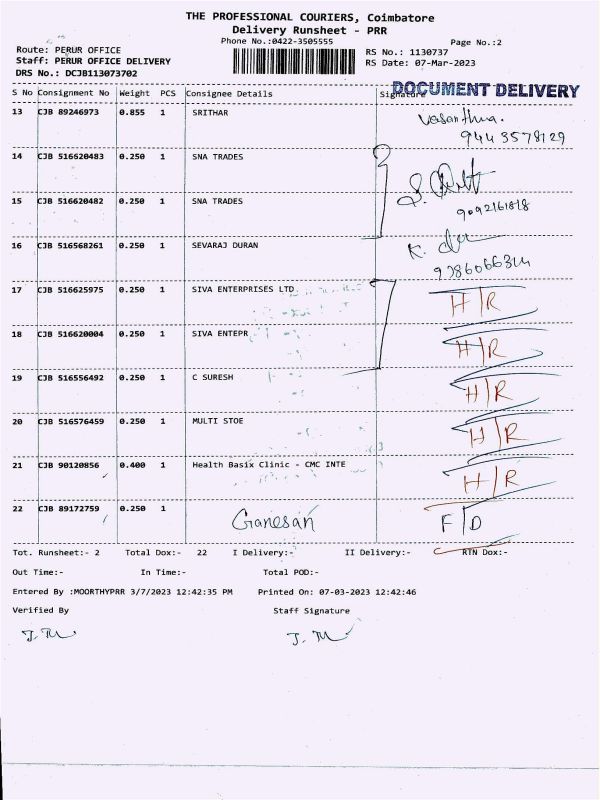 THE PROFESSIONAL COURIERS, Coimbatore
Delivery Runsheet - PRR
Phone No.:0422-3505555
Page No.:2
Route: PERUR OFFICE
RS No.: 1130737
Staff: PERUR OFFICE DELIVERY
RS Date: 07-Mar-2023
DRS No.: DCJB113073702
DOCUMENT DELIVERY
S No Consignment No Weight PCS Consignee Details Signature
13 CJB 89246973 0.855 1 SRITHAR Vasantha.
9443578129
14 CJB 516620483 0.250 1 SNA TRADES
15 CJB 516620482 0.250 1 SNA TRADES
9092161818
16 CJB 516568261 0.250 1 SEVARAJ DURAN
17 CJB 516625975 0.250 1 SIVA ENTERPRISES LTD H/R
18 CJB 516620004 0.250 1 SIVA ENTEPR H/R
19 CJB 516556492 0.250 1 C SURESH H/R
20 CJB 516576459 0.250 1 MULTI STOE H/R
21 CJB 90120856 0.400 1 Health Basix Clinic - CMC INTE H/R
22 CJB 89172759 0.250 1 Ganesan F/D
Tot. Runsheet:- 2 Total Dox:- 22 I Delivery:- II Delivery:- RTN Dox:-
Out Time:- In Time:- Total POD:-
Entered By :MOORTHYPRR 3/7/2023 12:42:35 PM Printed On: 07-03-2023 12:42:46
Verified By Staff Signature